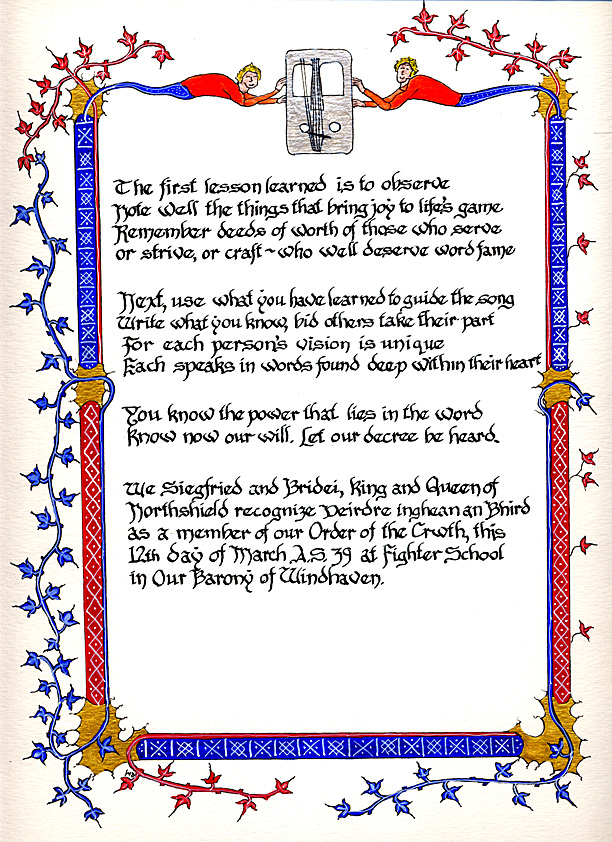 The first lesson learned is to observe
Note well the things that bring joy to life's game
Remember deeds of worth of those who serve
or strive, or craft ~ who well deserve word fame
Next, use what you have learned to guide the song
Write what you know, bid others take their part
For each person's vision is unique
Each speaks in words found deep within their heart
You know the power that lies in the word
Know now our will. Let our decree be heard.
We Siegfried and Bridei, King and Queen of
Northshield recognize Deirdre inghean an Bhird
as a member of our Order of the Crwth, this
12th day of March A.S. 39 at Fighter School
in Our Barony of Windhaven.